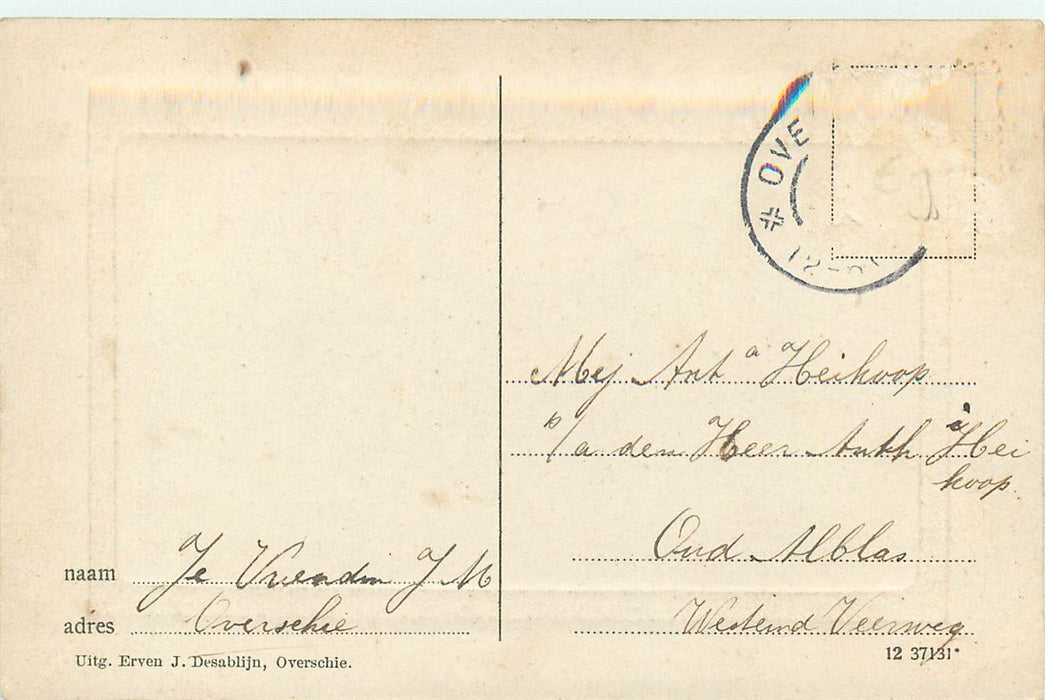 OVE
12-
Mej Ant a Heikoop
p/a den Heer Antk Hei
koop
Oud Alblas
Westeind Veerweg
naam Je Vriendin J M
adres Overschie
Uitg. Erven J. Desablijn, Overschie.
12 37131*